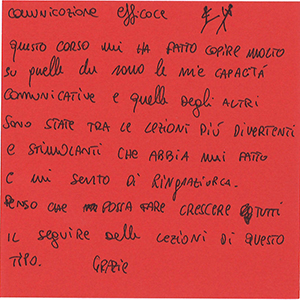 COMUNICAZIONE EFFICACE
QUESTO CORSO MI HA FATTO CAPIRE MOLTO
SU QUELLE CHE SONO LE MIE CAPACITÀ
COMUNICATIVE E QUELLE DEGLI ALTRI
SONO STATE TRA LE LEZIONI PIÚ DIVERTENTI
E STIMOLANTI CHE ABBIA MAI FATTO
E MI SENTO DI RINGRAZIARLA.
PENSO CHE POSSA FARE CRESCERE TUTTI
IL SEGUIRE DELLE LEZIONI DI QUESTO
TIPO. GRAZIE